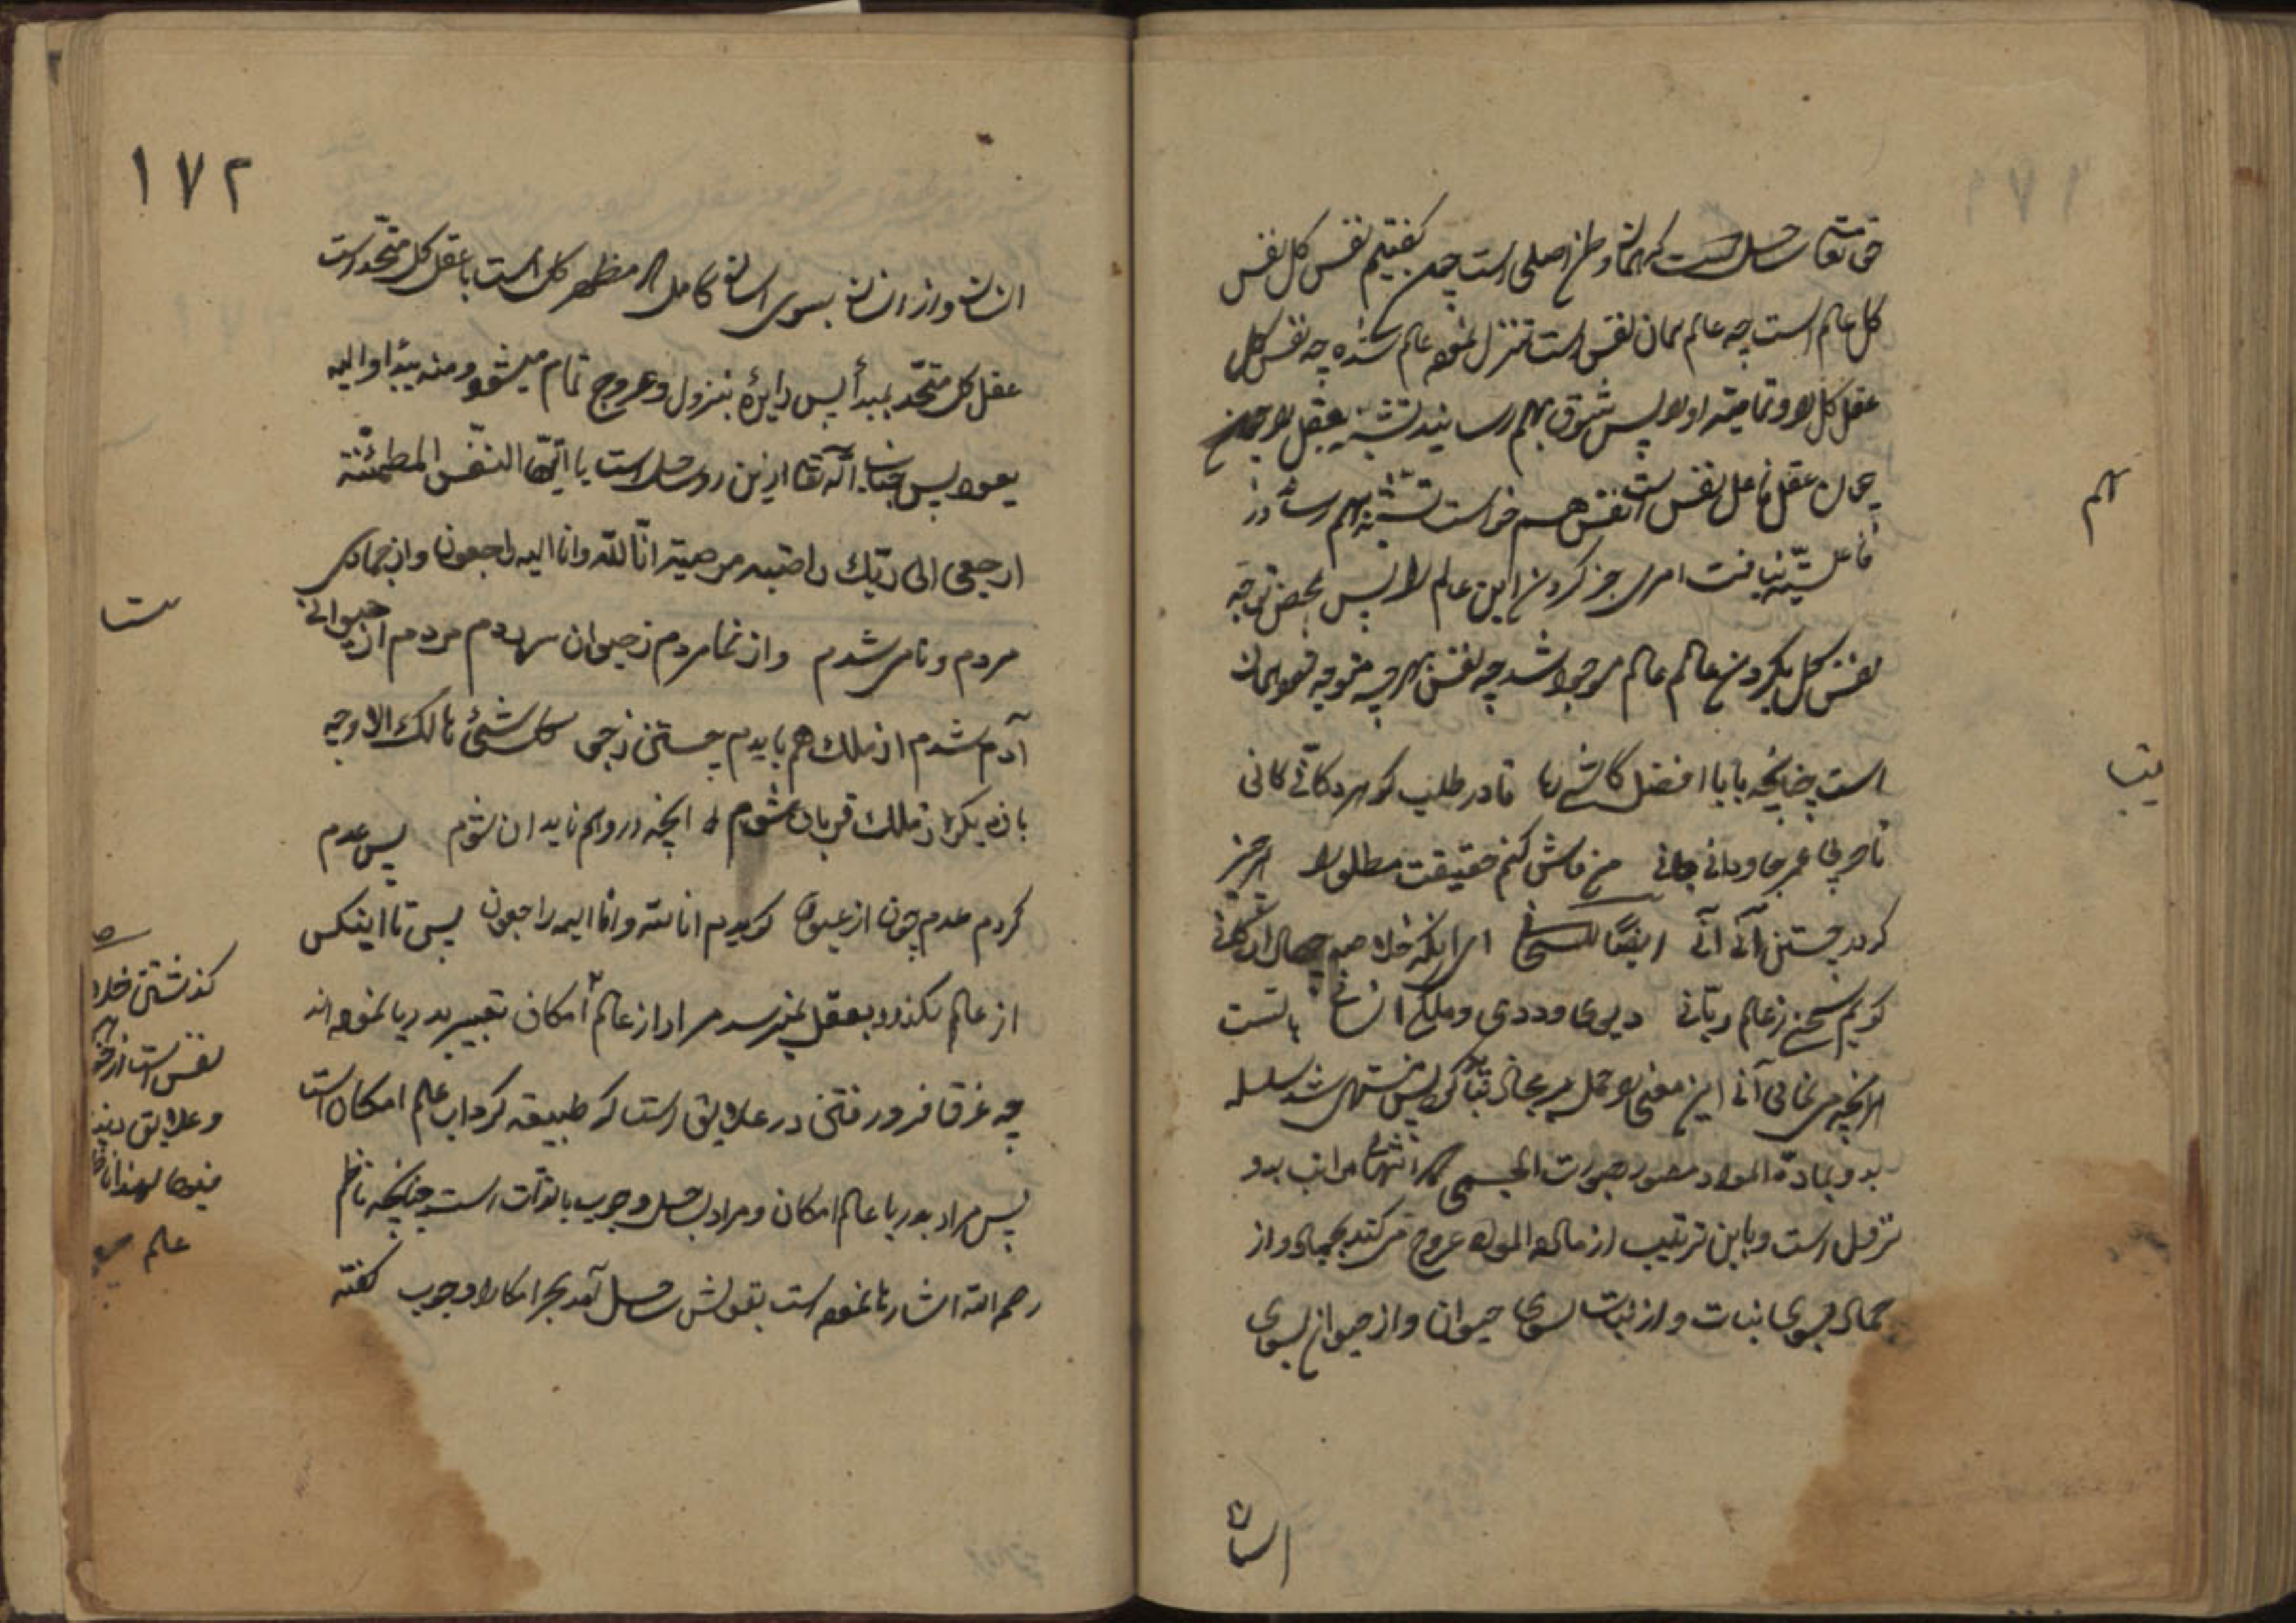 حق تعالی ساحل است که همان وطن اصلی است چون گفتیم نفس کل نفس
کل عالم است چه عالم همان نفس است تنزل نموده عالم شده چه نفس کل
عقل کل را و تمامیته او را پس شوق بهم رسانید تشبه بعقل را
چون عقل فاعل نفس است نفس هم خواست تشبه بهم رساند در
فاعلیته نیافت امری جز کردن این عالم را پس بمحض توجه
نفس کل بکردن عالم عالم موجود شد چه نفس بهرچه متوجه شود همان
است چنانچه بابا افضل کاشی رباعی تا در طلب گوهر کانی کانی
تا در پی عمر جاودانی جانی من فاش کنم حقیقت مطلق را هر چیز
که در جستن آنی آنی ایضا للسحابی ای آنکه خلاصه چهار ارکانی
گویم سخنی ز عالم ربانی دیوی و ددی و ملکی انسانی با تست
هر آنچه می نمائی آنی این معنی را حمل بر مجاز پس منتهی شد سلسله
بدو بمادة المواد مصور بصورت الجسمی مراتب بدو
نزول است و باین ترتیب از مادة المواد عروج میکند بجماد و از
جماد بسوی نبات و از نبات بسوی حیوان و از حیوان بسوی
انسان
الم
۱۷۲
انسان و از انسان بسوی انسان کامل که مظهر کل است با عقل کل متحد است
عقل کل متحد بمبدأ پس دایره بنزول و عروج تمام میشود و منه بدا و الیه
یعود پس جناب اله تعالی ازین رو ساحل است یا ایتها النفس المطمئنة
ارجعی الی ربک راضیه مرضیة انا لله و انا الیه راجعون و از جمادی
مردم و نامی شدم و از نما مردم ز حیوان سر زدم مردم از حیوانی
آدم شدم از ملک هم بایدم جستن ز جو کل شئ هالک الا وجه
بار دیگر از ملک قربان شوم آنچه در وهم ناید آن شوم پس عدم
کردم عدم چون ارغنون گویدم انا لله و انا الیه راجعون پس تا اینکس
از عالم نگذرد بعقل نمیرسد مراد از عالم امکان تعبیر بدریا نموده اند
چه غرق فرو رفتن در علایق است که طبیعه گرداب عالم امکان است
پس مراد بدریا عالم امکان و مراد بساحل وجوب بالذات است چنانچه ناظم
رحمه الله اشاره نموده است بقولش ساحل آمد بحر امکان را وجوب گفته
ست
گذشتن
نفس است از
و علایق
عالم